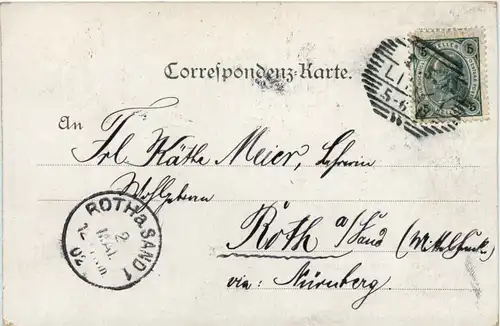 Correspondenz-Karte.
5 5
5 5
An
Frl. Käthe Meier, Lehrerin
Wohlgeboren
Roth a/Sand
via: Nürnberg.
ROTH a. SAND 1
2
MAI
02